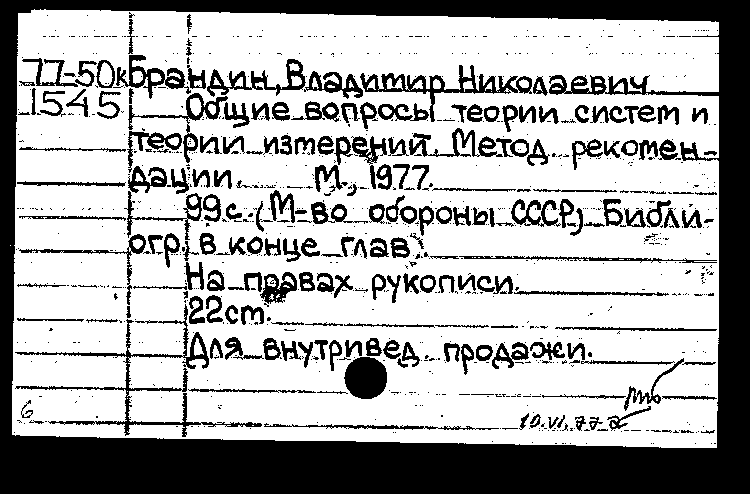 77-50к Брандин, Владимир Николаевич.
1545 Общие вопросы теории систем и
теории измерений. Метод. рекомен-
дации. М., 1977.
99с. (М-во обороны СССР) Библи-
огр. в конце глав).
На правах рукописи.
22ст.
Для внутривед. продажи.
6
10.VI.77